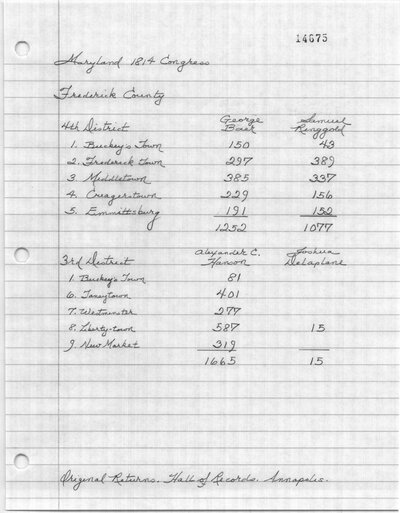 14675
Maryland 1814 Congress
Frederick County
4th District George Baer Samuel Ringgold
1. Buckey's Town 150 43
2. Frederick town 297 389
3. Middletown 385 337
4. Creagerstown 229 156
5. Emmittsburg 191 152
1252 1077
3rd District Alexander C. Hanson Joshua Delaplane
1. Buckey's Town 81
6. Taneytown 401
7. Westminster 277
8. Liberty-town 587 15
9. New Market 319
1665 15
Original Returns. Hall of Records. Annapolis.